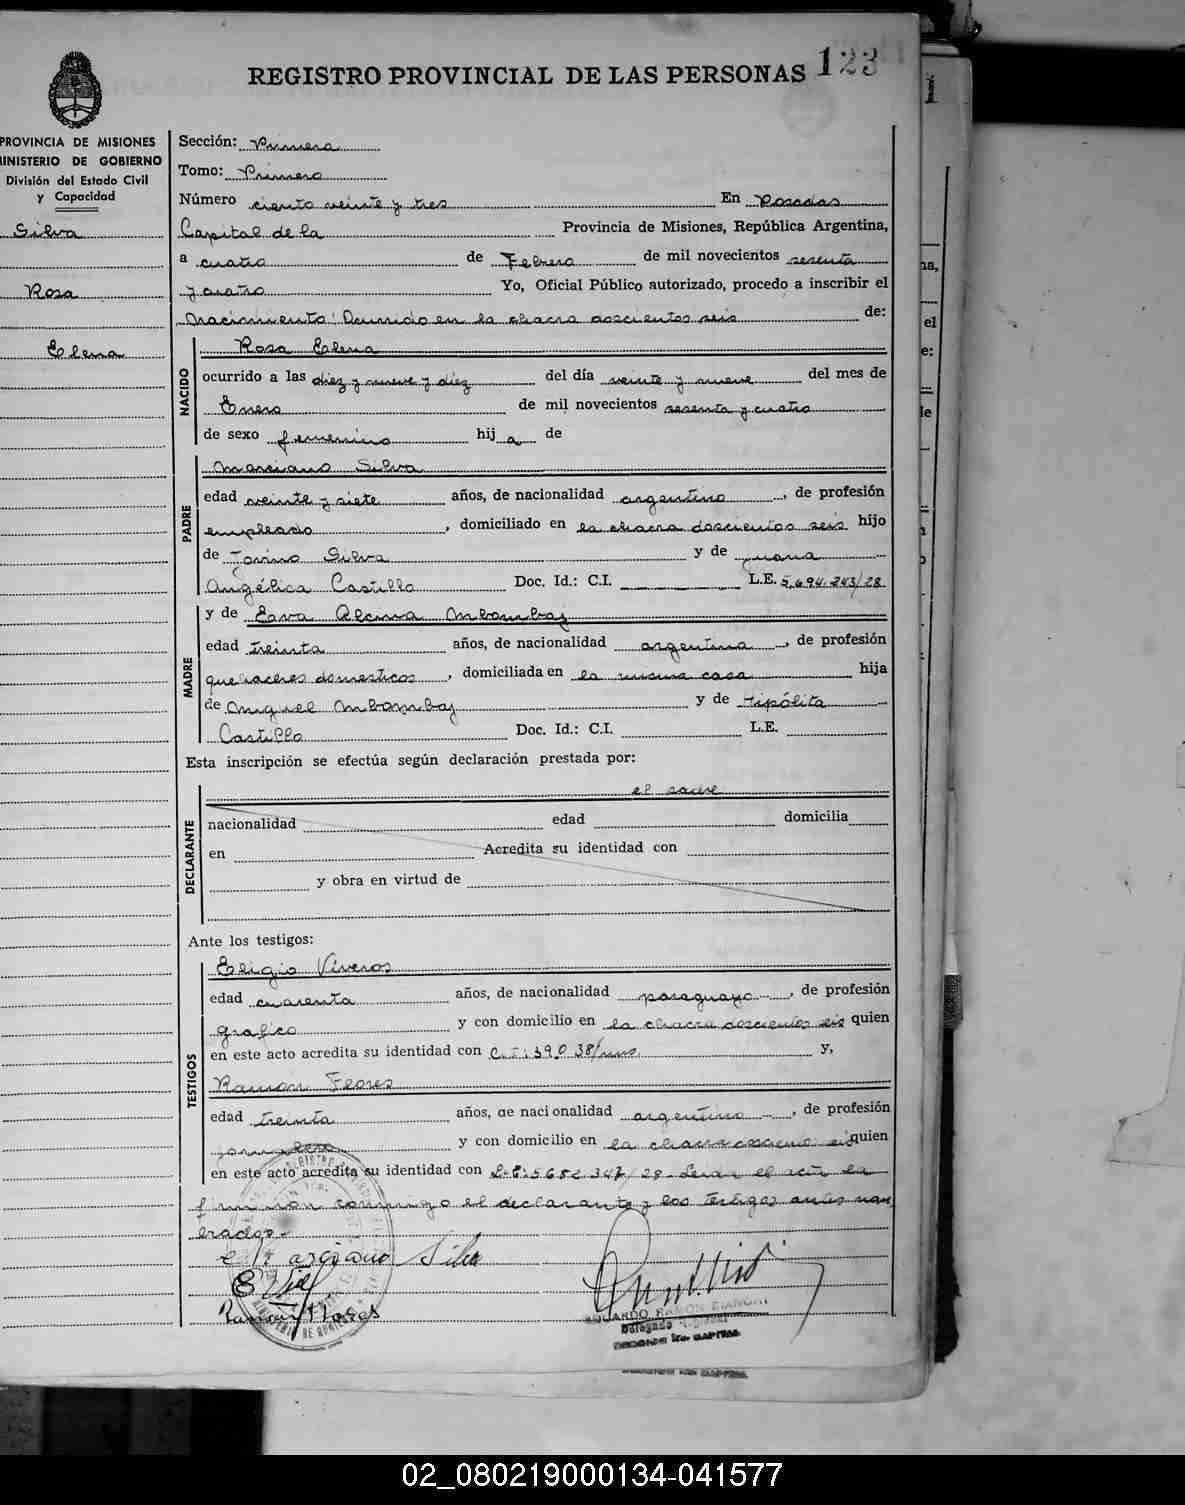 REGISTRO PROVINCIAL DE LAS PERSONAS 123
PROVINCIA DE MISIONES
MINISTERIO DE GOBIERNO
División del Estado Civil
y Capacidad
Silva
Rosa
Elena
Sección: Primera
Tomo: Primero
Número ciento veinte y tres En Posadas
Capital de la Provincia de Misiones, República Argentina,
a cuatro de Febrero de mil novecientos sesenta
y cuatro Yo, Oficial Público autorizado, procedo a inscribir el
Nacimiento: Ocurrido en la chacra doscientos seis de:
NACIDO
Rosa Elena
ocurrido a las diez y nueve y diez del día veinte y nueve del mes de
Enero de mil novecientos sesenta y cuatro
de sexo femenino hij a de
PADRE
Marciano Silva
edad veinte y siete años, de nacionalidad argentino, de profesión
empleado, domiciliado en la chacra doscientos seis hijo
de Jovino Silva y de Juana
Angélica Castillo Doc. Id.: C.I. L.E. 5.694.243/28
MADRE
y de Eva Alcina Mbombaj
edad treinta años, de nacionalidad argentina, de profesión
quehaceres domesticos, domiciliada en la misma casa hija
de Miguel Mbombaj y de Hipólita
Castillo Doc. Id.: C.I. L.E.
Esta inscripción se efectúa según declaración prestada por:
DECLARANTE
el padre
nacionalidad edad domicilia
en Acredita su identidad con
y obra en virtud de
Ante los testigos:
TESTIGOS
Eligio Viveros
edad cuarenta años, de nacionalidad paraguayo, de profesión
grafico y con domicilio en la chacra doscientos seis quien
en este acto acredita su identidad con C.I: 39038/mns. y,
Ramón Flores
edad treinta años, de nacionalidad argentino, de profesión
jornalero y con domicilio en la chacra seis quien
en este acto acredita su identidad con L.E: 347/28. el acta la
firman conmigo el declarante y los testigos antes nom
brados.-
Marciano Silva
Ramon Flores
EDUARDO RAMON BIANCHI
Delegado
02_080219000134-041577